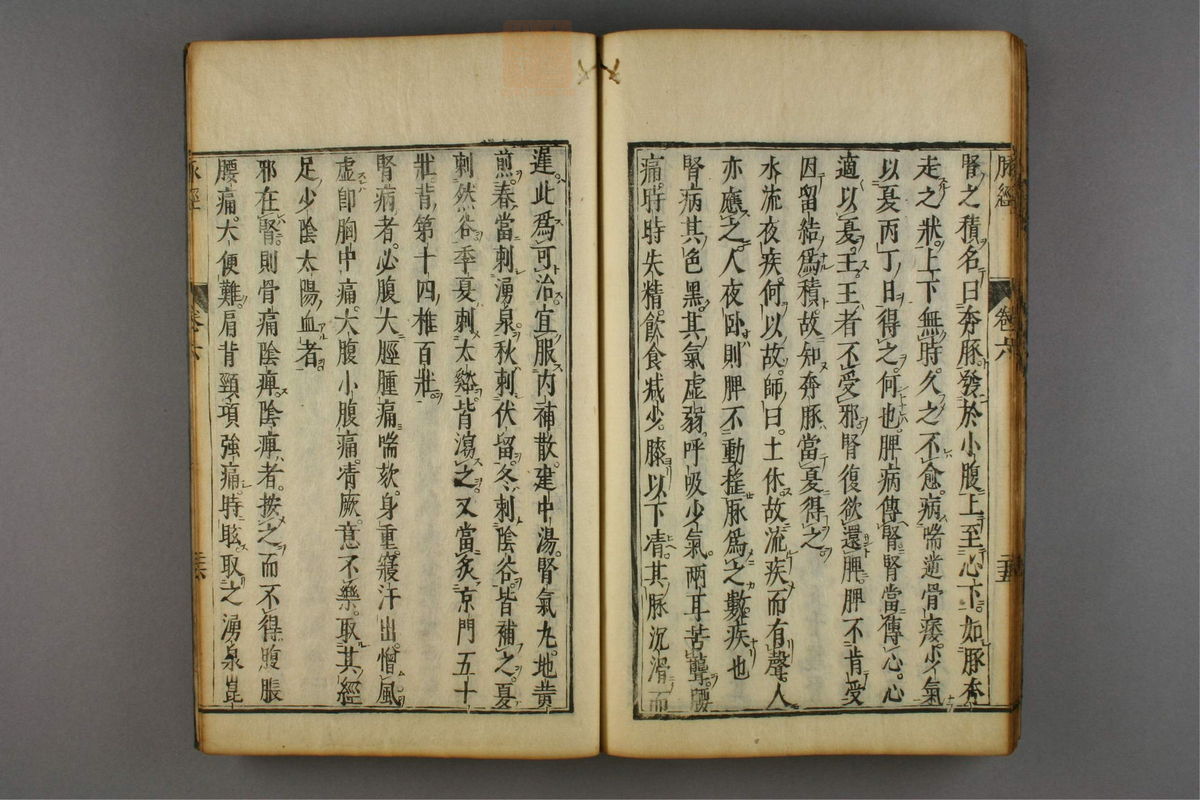 脉經 卷六 二十五
腎之積名曰奔豚發於小腹上至心下如豚奔
走之狀上下無時久之不愈病喘逆骨痿少氣
以夏丙丁日得之何也脾病傳腎腎當傳心心
適以夏王王者不受邪腎復欲還脾脾不肯受
因留結爲積故知奔豚當夏得之
水流夜疾何以故師曰土休故流疾而有聲人
亦應之人夜臥則脾不動搖脉爲之數疾也
腎病其色黑其氣虛弱呼吸少氣兩耳苦聾腰
痛時時失精飲食减少膝以下清其脉沉滑而
遲此爲可治宜服内補散建中湯腎氣丸地黄
煎春當刺湧泉秋刺伏留冬刺陰谷皆補之夏
刺然谷季夏刺太谿皆瀉之又當灸京門五十
壯背第十四椎百壯
腎病者必腹大脛腫痛喘欬身重寢汗出憎風
虛卽胸中痛大腹小腹痛清厥意不樂取其經
足少陰太陽血者
邪在腎則骨痛陰痺陰痺者按之而不得腹脹
腰痛大便難肩背頸項強痛時眩取之湧泉崑
脉經 卷六 二十六